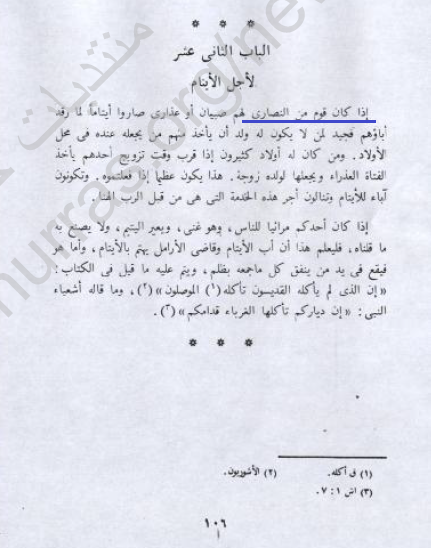 * * *
الباب الثانى عشر
لأجل الأيتام
إذا كان قوم من النصارى لهم صبيان أو عذارى صاروا أيتاماً لما رقد
أباؤهم فجيد لمن لا يكون له ولد أن يأخذ منهم من يجعله عنده فى محل
الأولاد. ومن كان له أولاد كثيرون إذا قرب وقت تزويج أحدهم يأخذ
الفتاة العذراء ويجعلها لولده زوجة. هذا يكون عظيما إذا فعلتموه. وتكونون
آباء للأيتام وتنالون أجر هذه الخدمة التى هى من قبل الرب الهنا.
إذا كان أحدكم مرائيا للناس، وهو غنى، ويعير اليتيم، ولا يصنع به
ما قلناه، فليعلم هذا أن أب الأيتام وقاضى الأرامل يهتم بالأيتام، وأما هو
فيقع فى يد من ينفق كل ماجمعه بظلم، ويتم عليه ما قيل فى الكتاب:
«إن الذى لم يأكله القديسون تأكله(١) الموصلون»(٢)، وما قاله أشعياء
النبى: «إن دياركم تأكلها الغرباء قدامكم»(٣).
* * *
(١) فى أكله. (٢) الأشوريون.
(٣) اش ١ : ٧.
١٠٦
منتديات
hurras.org/new